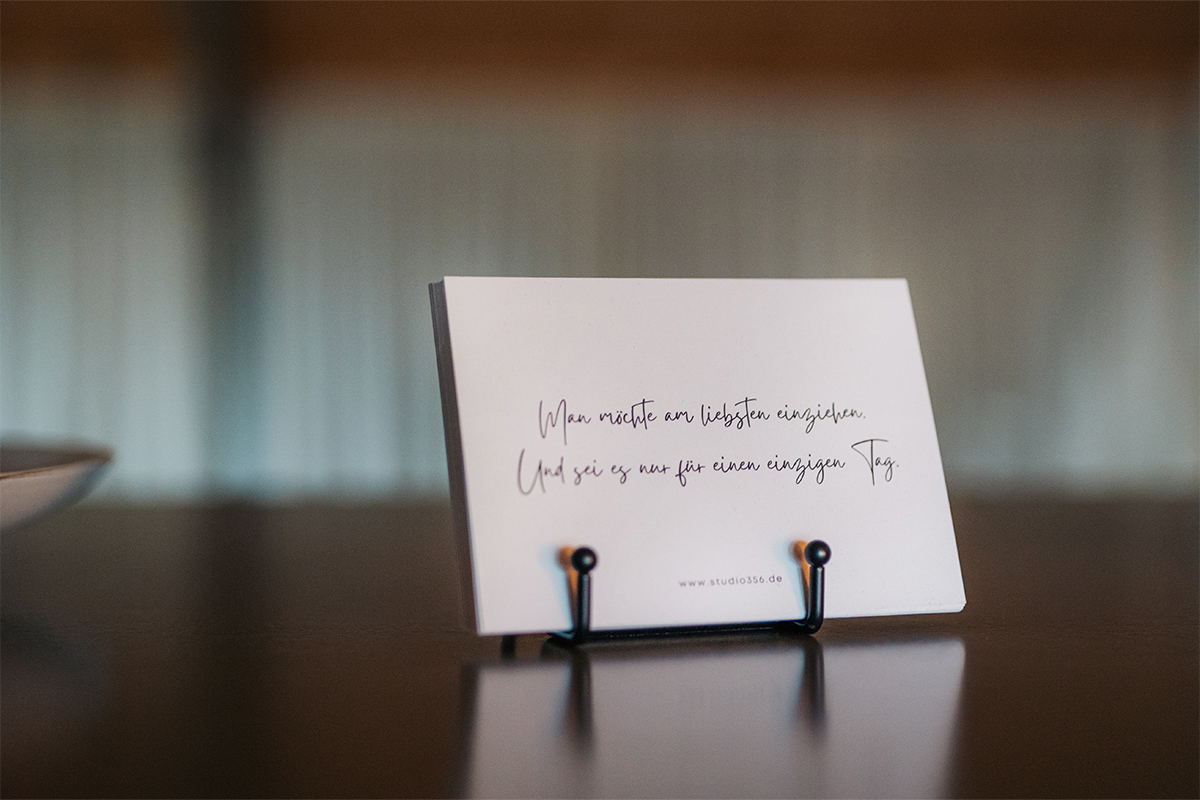 Man möchte am liebsten einziehen.
Und sei es nur für einen einzigen Tag.
www.studio356.de